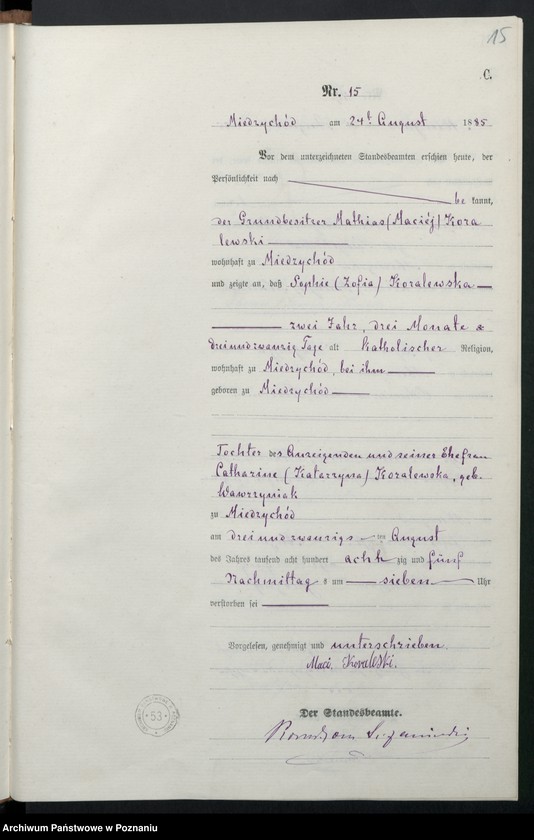 15
C.
Nr. 15
Miedzychód am 24t August 1885
Vor dem unterzeichneten Standesbeamten erschien heute, der
Persönlichkeit nach
be kannt,
der Grundbesitzer Mathias (Maciéj) Kora
lewski
wohnhaft zu Miedzychód
und zeigte an, daß Sophie (Zofia) Koralewska
zwei Jahr, drei Monate &
dreiundzwanzig Tage alt katholischer Religion,
wohnhaft zu Miedzychód, bei ihm
geboren zu Miedzychód
Tochter des Anzeigenden und seiner Ehefrau
Catharine (Katarzyna) Koralewska, geb.
Wawrzyniak
zu Miedzychód
am dreiundzwanzigs ten August
des Jahres tausend acht hundert achtzig und fünf
Nachmittag s um sieben Uhr
verstorben sei
Vorgelesen, genehmigt und unterschrieben.
Maci. Koralski.
Der Standesbeamte.
53
Archiwum Państwowe w Poznaniu